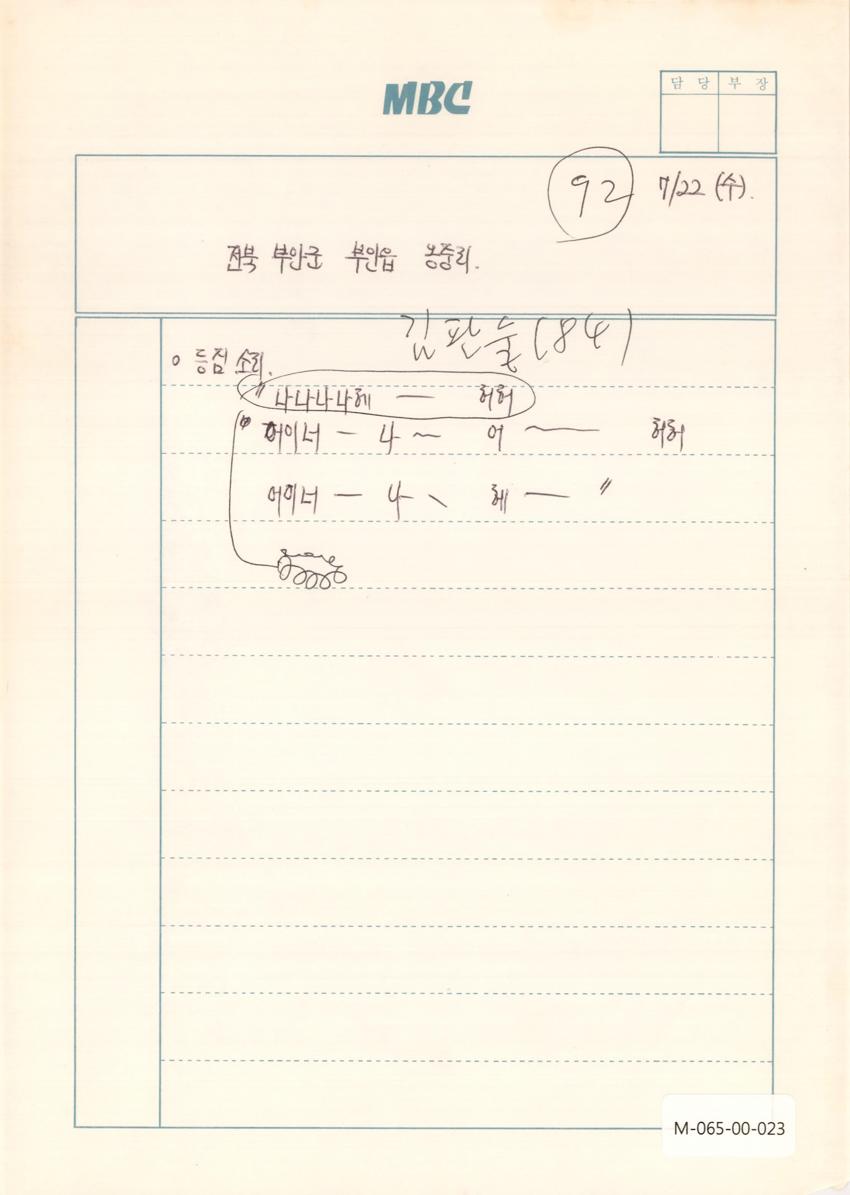 MBC
담당 부장
92 7/22 (수).
전북 부안군 부안읍 옹중리.
김판술(84)
o 등짐 소리.
〃 나나나나헤 — 허허
어이너 — 나 ~ 어 ~ 허허
어이너 — 나 ㆍ 헤 — 〃
M-065-00-023